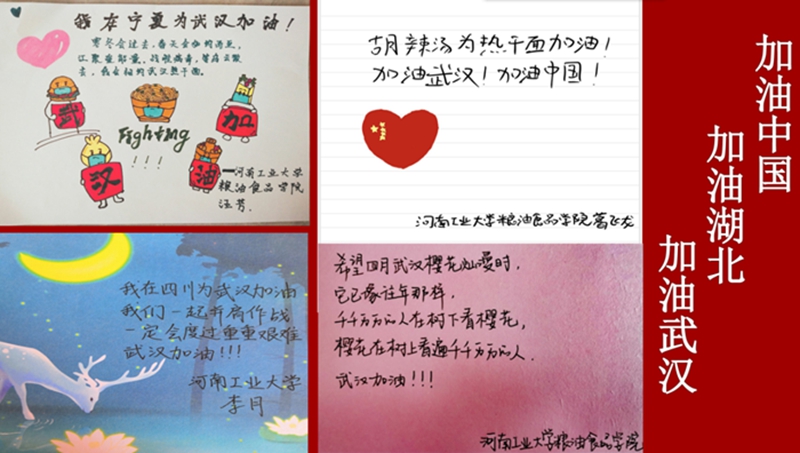 我在宁夏为武汉加油！
寒冬会过去，春天会如约而至，
江聚雀部晕，战胜病毒，等病云散
去，我会相约武汉热干面。
武
加
Fighting
！！！
汉
油
——河南工业大学
粮油食品学院
汪芳.
胡辣汤为热干面加油！
加油武汉！加油中国！
河南工业大学粮油食品学院葛飞龙
我在四川为武汉加油
我们一起并肩作战
一定会度过重重艰难
武汉加油!!!
河南工业大学
李月
希望四月武汉樱花灿漫时，
它已像往年那样，
千千万万的人在树下看樱花，
樱花在树上看遍千千万万的人．
武汉加油!!!
河南工业大学粮油食品学院
加油中国
加油湖北
加油武汉